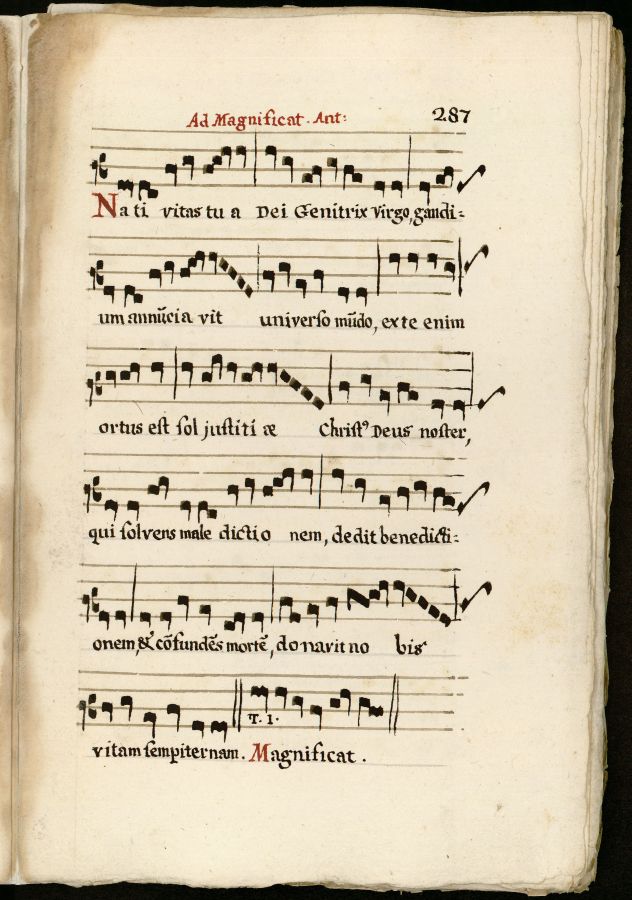 Ad Magnificat. Ant: 287
Nati vitas tu a Dei Genitrix Virgo, gaudi:
um annũcia vit universo mũdo, ex te enim
ortus est sol justiti æ Christ⁹ Deus noster,
qui solvens male dictio nem, dedit benedicti:
onem, & cõfundẽs mortẽ, donavit no bis
T. 1.
vitam sempiternam. Magnificat.